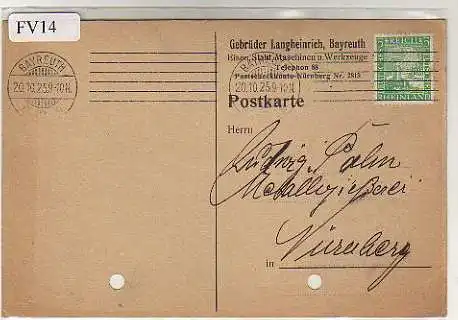 FV14
BAYREUTH
20.10.25.9-10N.
Gebrüder Langheinrich, Bayreuth
Eisen, Stahl, Maschinen u. Werkzeuge
Telephon 88
Postscheckkonto Nürnberg Nr. 2815
20.10.25.9-10N.
5 REICH 5
RHEINLAND
Postkarte
Herrn
Ludwig Palm
Metallgießerei
in Nürnberg